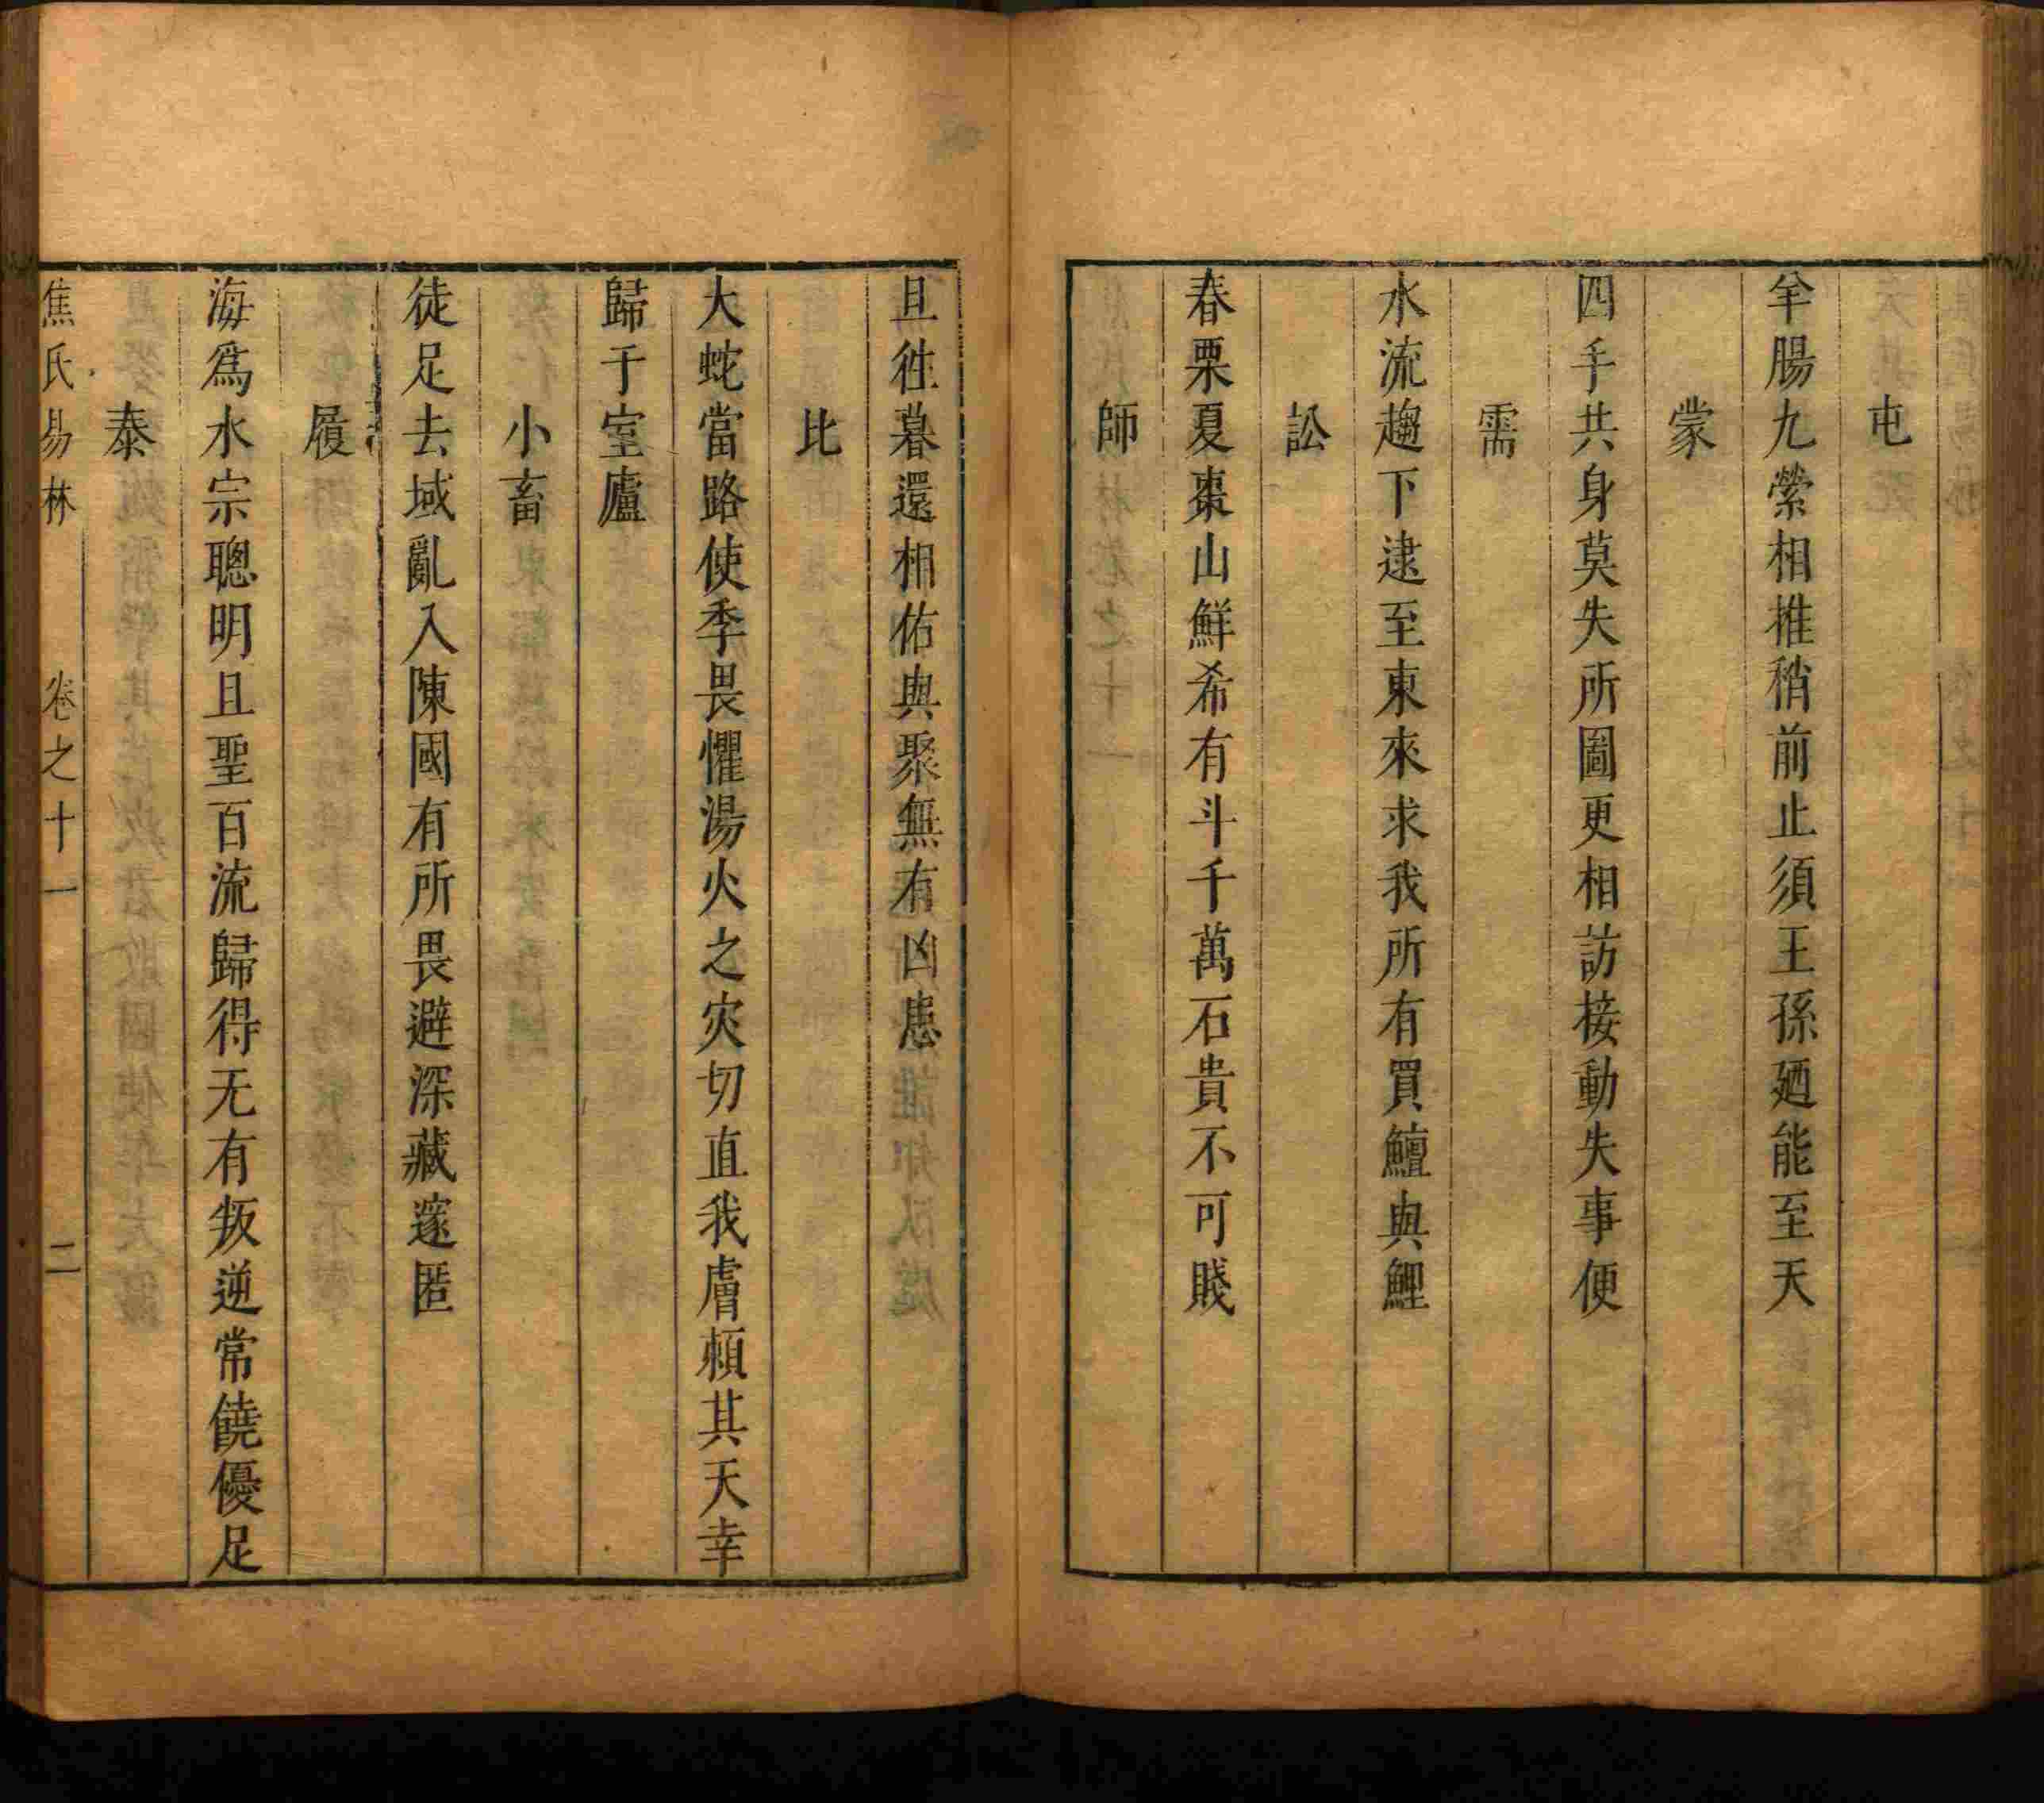 屯
羊腸九縈相推稍前止須王孫廼能至天
蒙
四手共身莫失所圖更相訪接動失事便
需
水流趨下逮至東來求我所有買鱣與鯉
訟
春栗夏棗山鮮希有斗千萬石貴不可賤
師
且徃暮還相佑與聚無有凶患
比
大蛇當路使季畏懼湯火之灾切直我膚賴其天幸
歸于室廬
小畜
徒足去域亂入陳國有所畏避深藏邃匿
履
海爲水宗聰明且聖百流歸得无有叛逆常饒優足
泰
焦氏易林 卷之十一 二